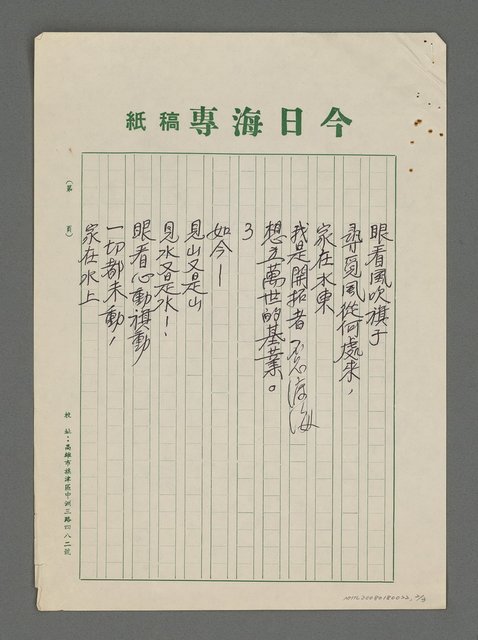 今日海專稿紙
眼看風吹旗子
尋覓風從何處來，
家在水東
我是開拓者 不怠渡海
想立萬世的基業。
3
如今—
見山又是山
見水又是水！
眼看心動旗動
一切都未動！
家在水上
（第 頁）
校址：高雄市旗津區中洲三路四八二號
NMTL20080180022, 2/3